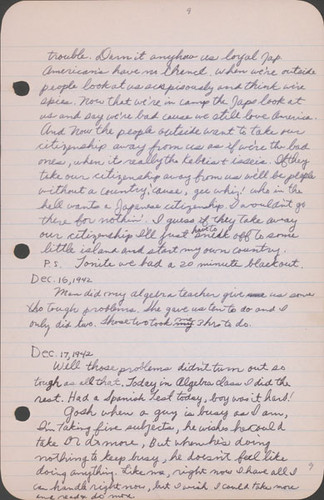 9
trouble. Dern it anyhow us loyal Jap
Americans have no chence. When we're outside
people look at us suspisciously and think we're
spies. Now that we're in camp the Japs look at
us and say we're bad cause we still love America.
And Now the people outside want to take our
citizenship away from us as if we're the bad
ones, when it really the kebies & isseis. If they
take our citizenship away from us will be people
without a country, 'cause, gee whiz! who in the
hell wants a Japanese citizenship. I wouldn't go
there for nothin'. I guess if they take away
our citizenship I'll just have to sneak off to some
little island and start my own country.
P.S. Tonite we had a 20 minute blackout.
Dec. 16, 1942
Man did my algebra teacher give us some
tough problems. She gave us ten to do and I
only did two. Those two took my 3 hrs to do.
Dec. 17, 1942
Well those problems didn't turn out so
tough as all that. Today in Algebra class I did the
rest. Had a Spanish Test today, boy was it hard!
Gosh when a guy is busy as I am,
I'm taking five subjects, he wishes he could
take or do more, But when he's doing
nothing to keep busy, he doesn't feel like
doing anything. Like me, right now I have all I
can handle right now, but I wish I could take more
and do more